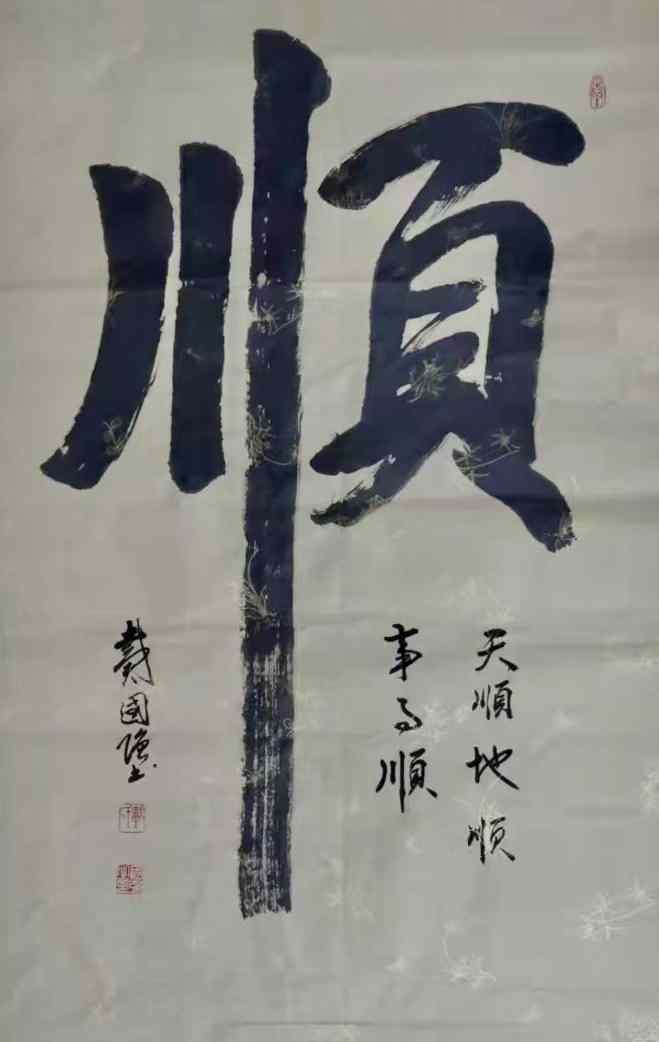 順
天順地順
事事順
戴國強書